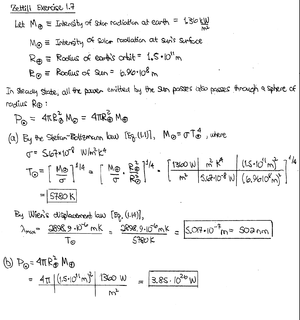 Zettili Exercise 1.7
Let M⊕ ≡ Intensity of solar radiation at earth = 1.36 kW/m²
M⊙ ≡ Intensity of solar radiation at sun's surface
R⊕ ≡ Radius of earth's orbit = 1.5·10¹¹ m
R⊙ ≡ Radius of Sun = 6.96·10⁸ m
In steady state, all the power emitted by the sun passes also passes through a sphere of
radius R⊕:
P⊙ = 4πR⊙² M⊙ = 4πR⊕² M⊕
(a) By the Stefan-Boltzmann law [Eq. (1.1)], M⊙ = σT⊙⁴, where
σ = 5.67×10⁻⁸ W/m²K⁴
T⊙ = [M⊙/σ]^1/4 = [M⊕/σ · R⊕²/R⊙²]^1/4 = [1360 W/m² | m² K⁴/5.67·10⁻⁸ W | (1.5·10¹¹ m)²/(6.96·10⁸ m)²]^1/4
= 5780 K
By Wien's displacement law [Eq. (1.14)],
λmax = 2898.9·10⁻⁶ m K/T⊙ = 2898.9·10⁻⁶ m K/5780 K = 5.01·10⁻⁷ m = 502 nm
(b) P⊙ = 4πR⊕² M⊕
= 4π | (1.5·10¹¹ m)² | 1360 W/m² = 3.85·10²⁶ W